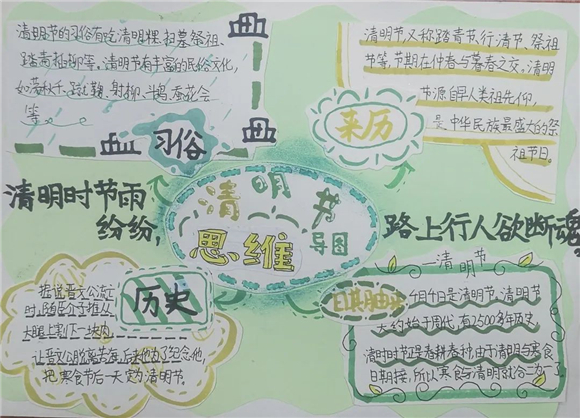 清明节的习俗有吃清明粿、扫墓祭祖、
踏青植柳等、清明节有丰富的民俗文化,
如荡秋千、蹴鞠、射柳、斗鸡、蚕花会
等。
习俗
清明节又称踏青节、行清节、祭祖
节等,节期在仲春与暮春之交,清明
节源自早人类祖先仰,
是中华民族最盛大的祭
祖节日。
来历
清明节
思维导图
清明时节雨
纷纷,
路上行人欲断魂。
据说晋文公流亡
时,随臣介子推从
大腿上割下一块肉
让晋文公
把寒食节后一天定为清明节。
历史
清明节
4月4日是清明节、清明节
大约始于周代,有2500多年历史。
清明时节正是春耕春种,由于清明与寒食
日期接,所以寒食与清明就合二为一了。